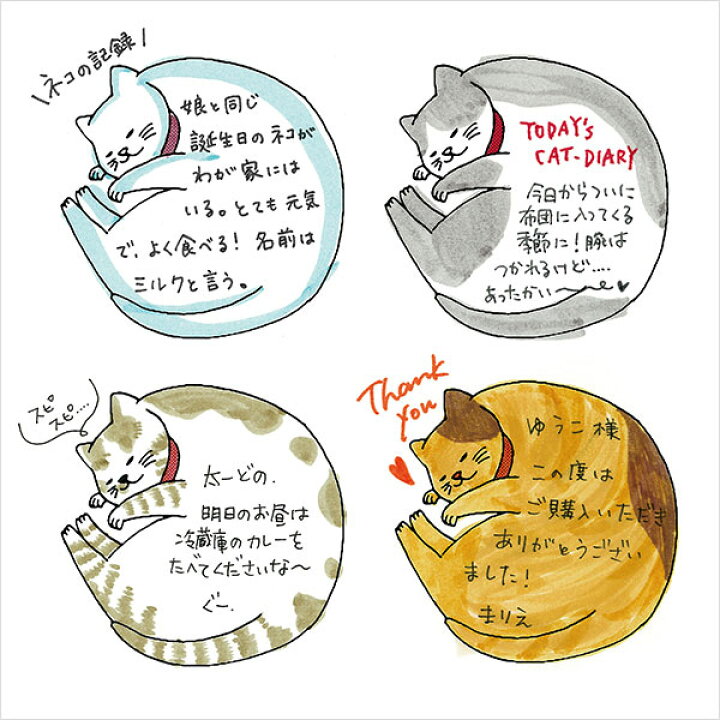 ネコの記録
娘と同じ
誕生日のネコが
わが家には
いる。とても元気
で、よく食べる！名前は
ミルクと言う。
TODAY's
CAT-DIARY
今日からついに
布団に入ってくる
季節に！腕は
つかれるけど‥‥
あったかい〜〜♥
スピ
スピ‥‥
太一どの.
明日のお昼は
冷蔵庫のカレーを
たべてくださいな〜
ぐー.
Thank
you
ゆうこ様
この度は
ご購入いただき
ありがとうござい
ました！
まりえ